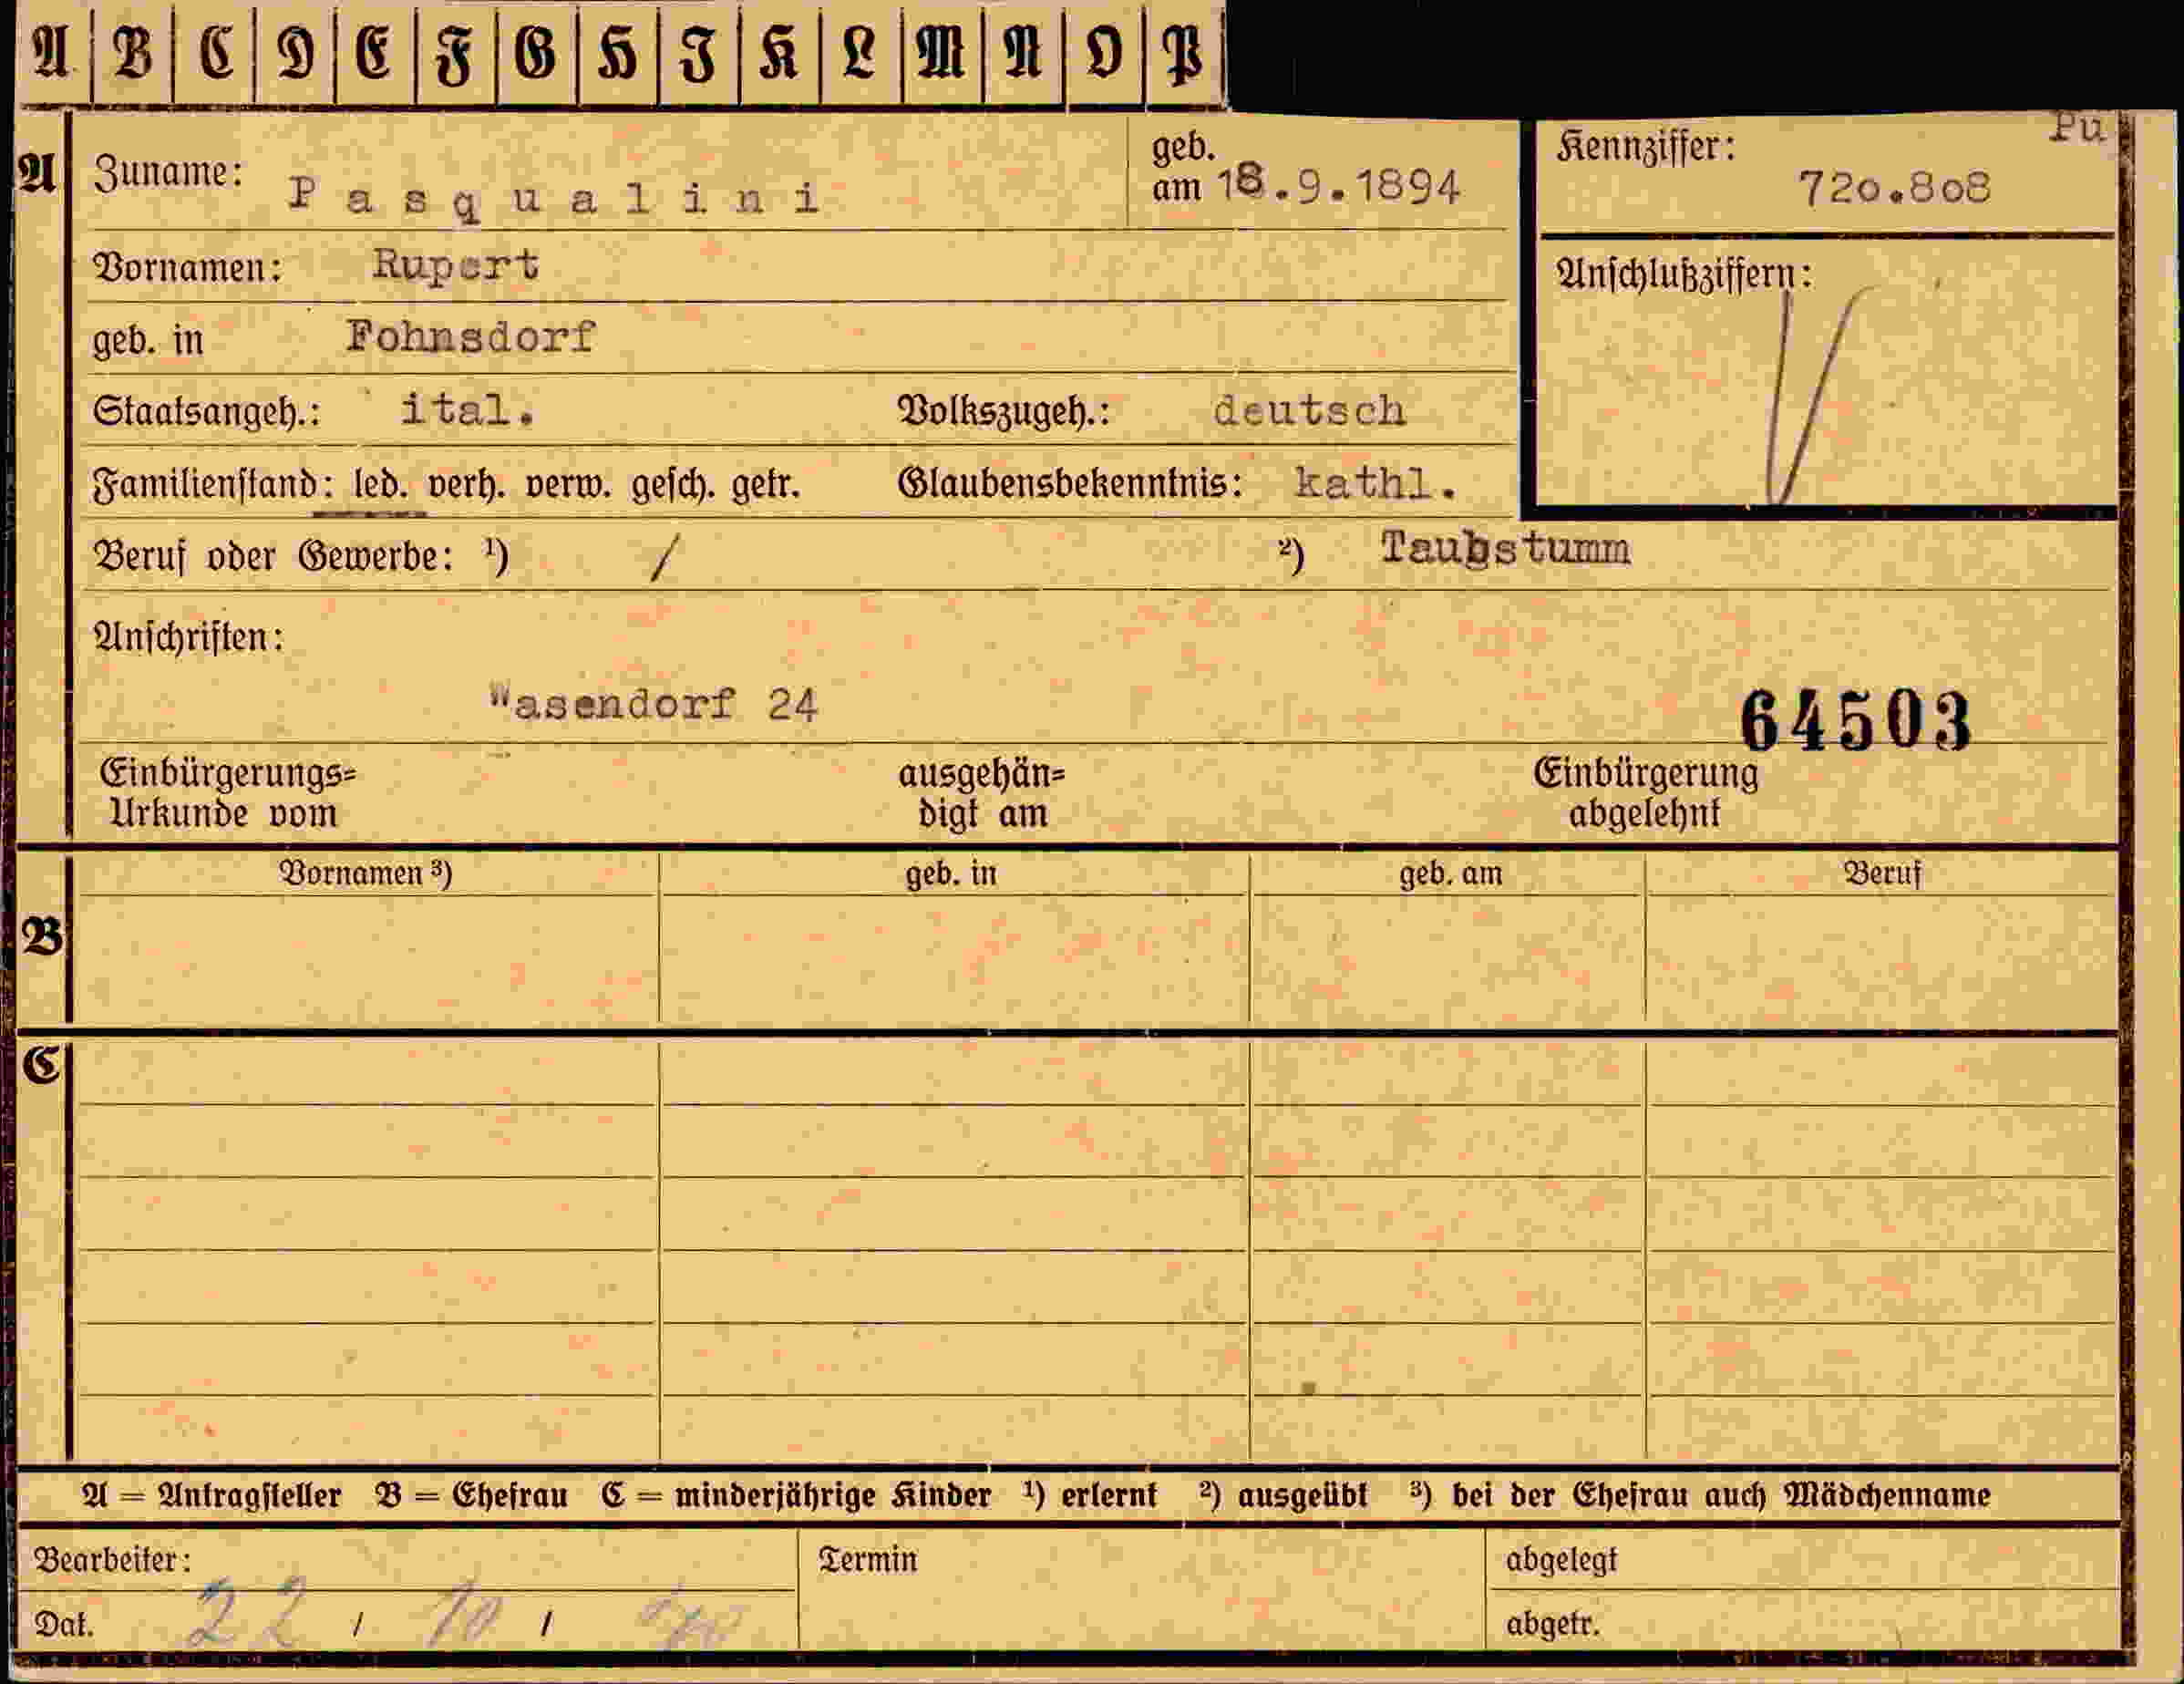 A B C D E F G H I K L M N O P
Pu
A Zuname: Pasqualini geb. am 18.9.1894 Kennziffer: 720.808
Vornamen: Rupert
Anschlußziffern:
geb. in Fohnsdorf
Staatsangeh.: ital. Volkszugeh.: deutsch
Familienstand: led. verh. verw. gesch. getr. Glaubensbekenntnis: kathl.
Beruf oder Gewerbe: ¹) / ²) Taubstumm
Anschriften:
Wasendorf 24 64503
Einbürgerungs= ausgehän= Einbürgerung
Urkunde vom digt am abgelehnt
Vornamen ³) geb. in geb. am Beruf
B
C
A = Antragsteller B = Ehefrau C = minderjährige Kinder ¹) erlernt ²) ausgeübt ³) bei der Ehefrau auch Mädchenname
Bearbeiter: Termin abgelegt
Dat. 22 / 10 / 40 abgetr.